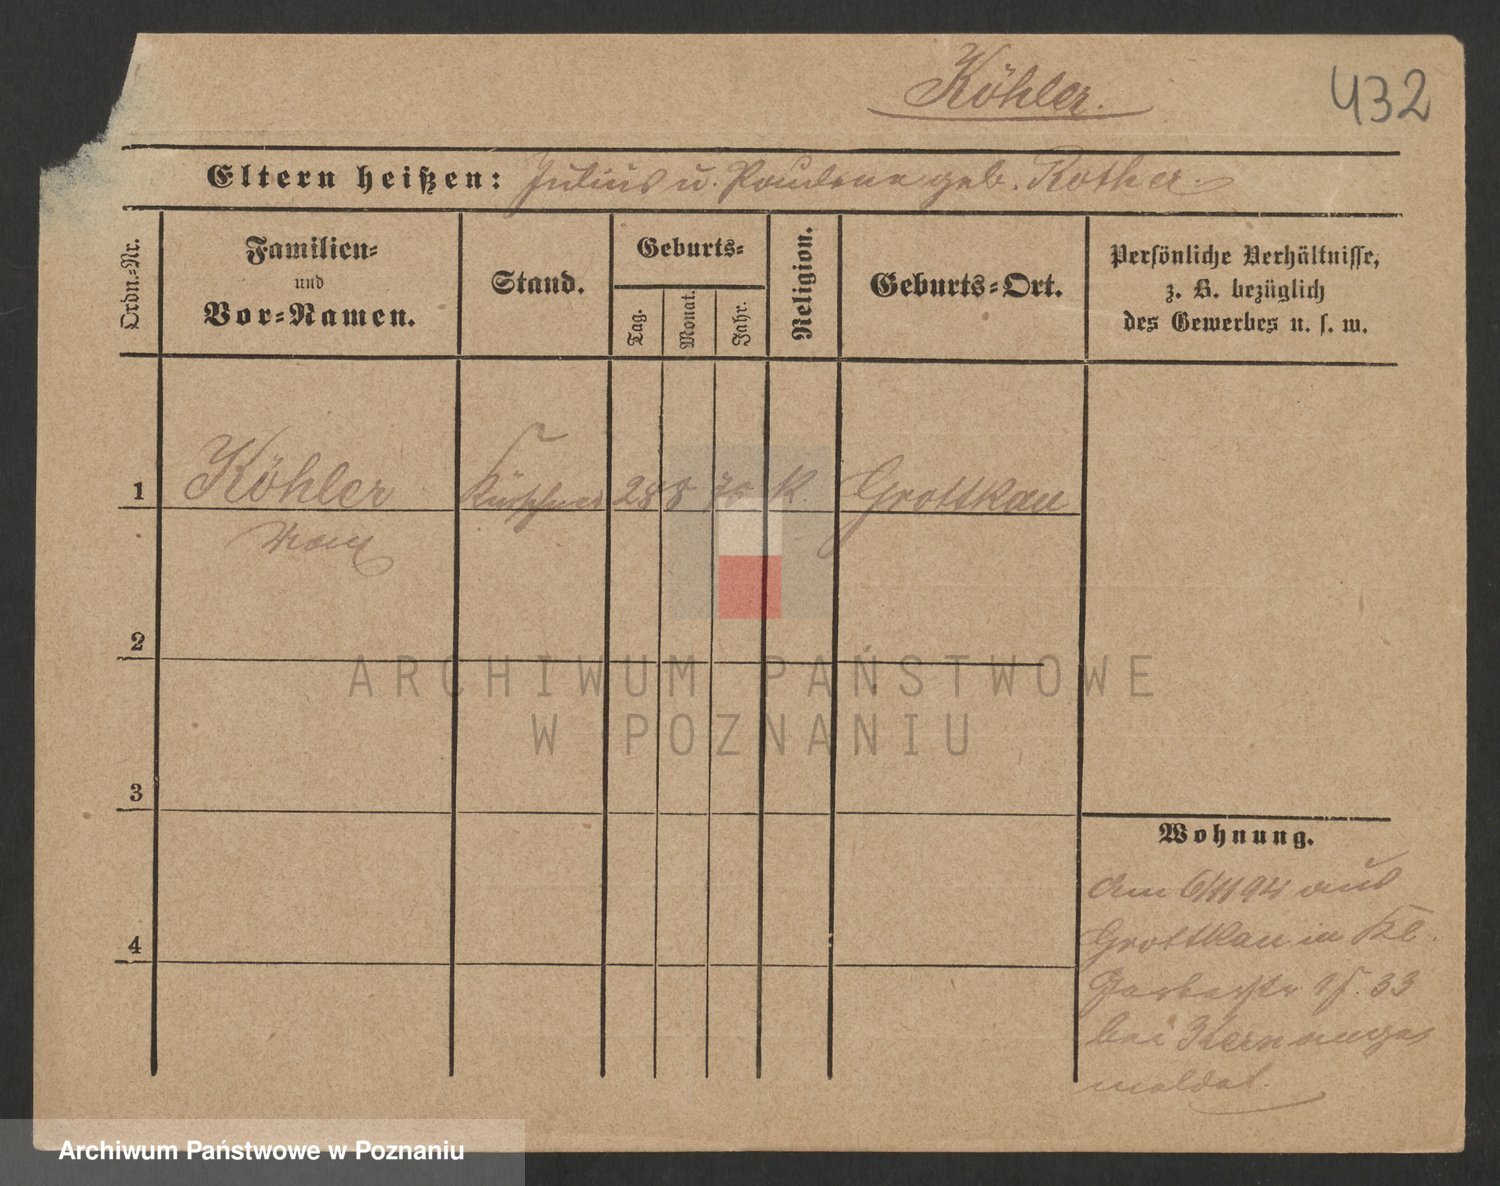 Köhler.
432
Eltern heißen: Julius u. Pauline geb. Rother.
Ordn.-Nr.
Familien-
und
Vor-Namen.
Stand.
Geburts-
Tag.
Monat.
Jahr.
Religion.
Geburts-Ort.
Persönliche Verhältnisse,
z. B. bezüglich
des Gewerbes u. s. w.
1 Köhler Kürschner 28 8 76 K. Grottkau
2
3
4
Wohnung.
Am 6/11 94 aus
Grottkau in Kl.
Gerberstr 33
bei
meldet.
ARCHIWUM PAŃSTWOWE
W POZNANIU
Archiwum Państwowe w Poznaniu